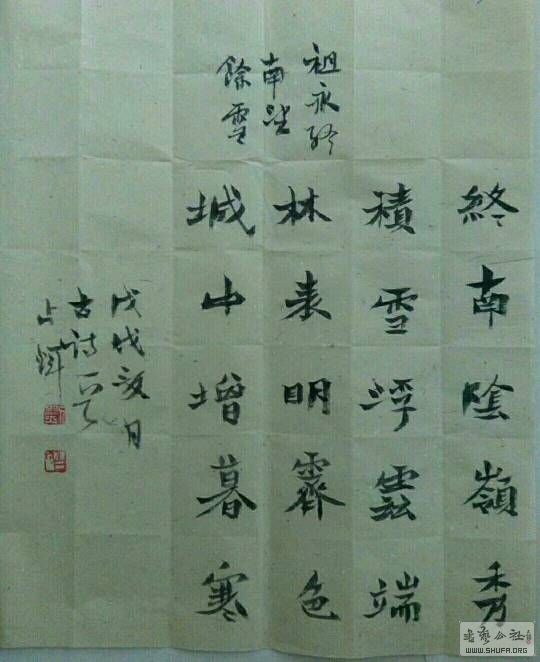 祖永終
南望
餘雪
終南陰嶺秀
積雪浮雲端
林表明霽色
城中增暮寒
戊戌月
古詩一首
書藝公社
WWW.SHUFA.ORG